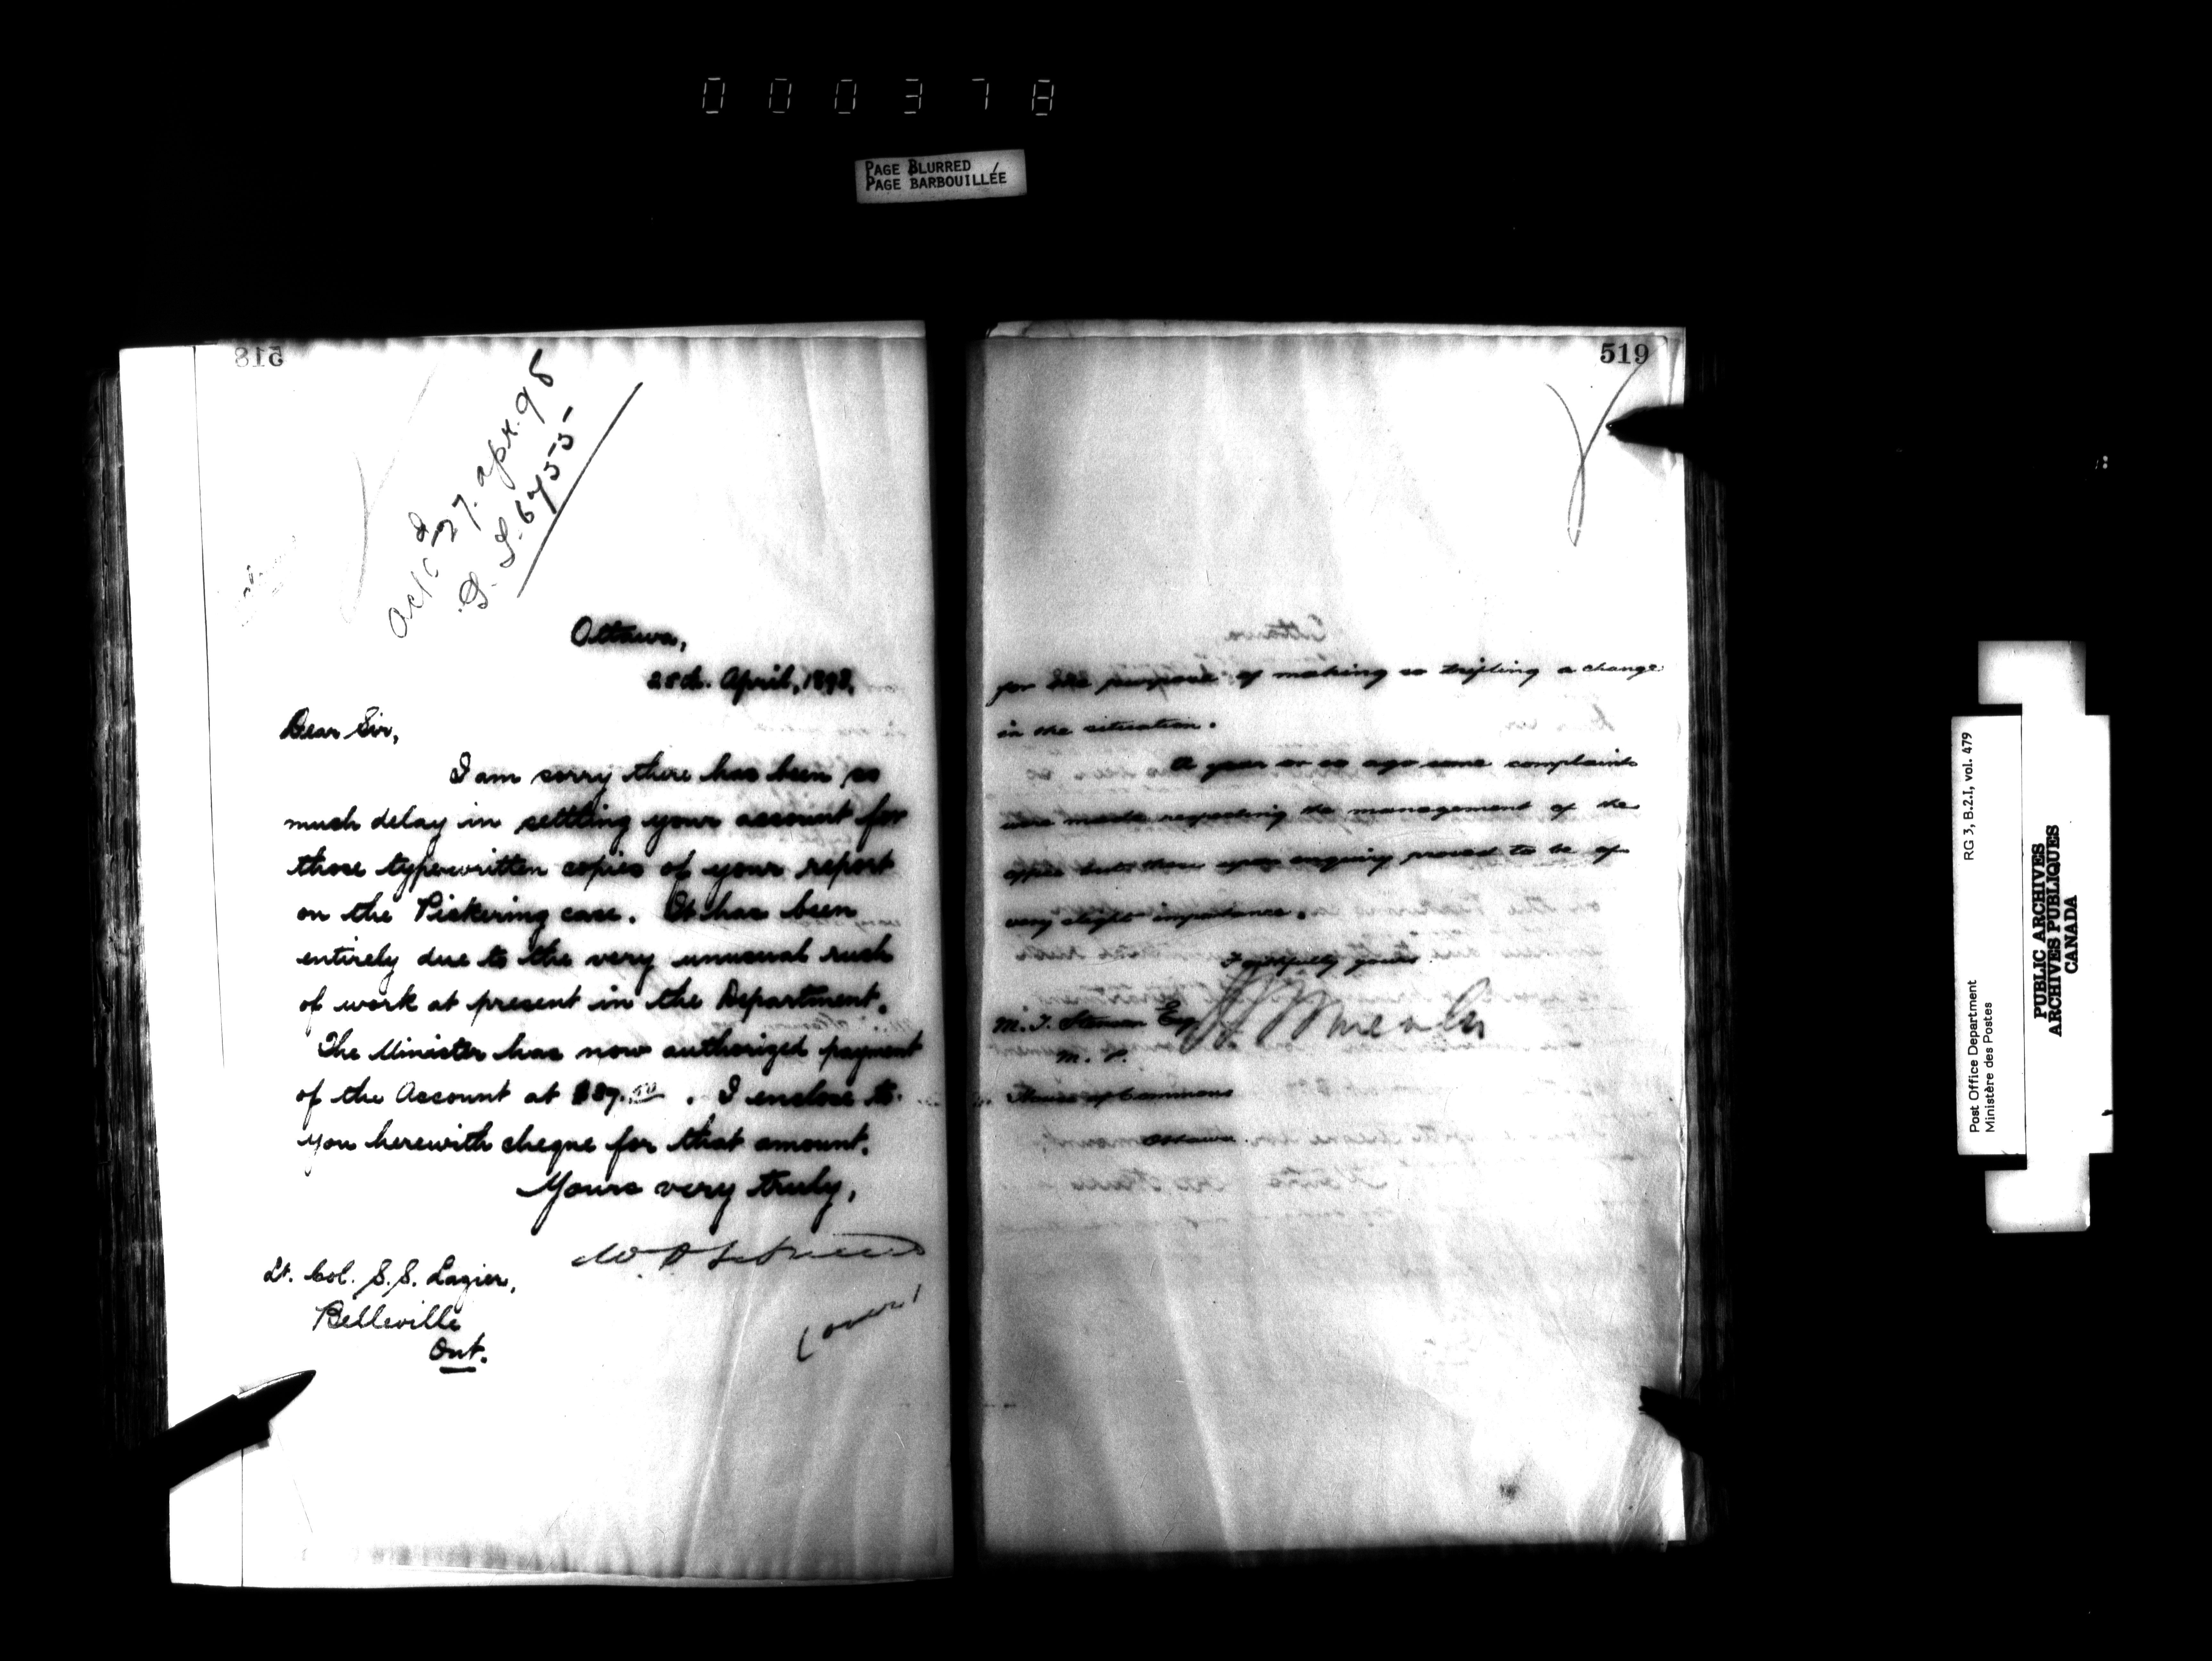 000378
PAGE BLURRED
PAGE BARBOUILLÉE
518
27. Apr. 98
6755
Ottawa,
28th. April, 1898.
Dear Sir,
I am sorry there has been so
much delay in settling your account for
those typewritten copies of your report
on the Pickering case. It has been
entirely due to the very unusual rush
of work at present in the Department.
The Minister has now authorized payment
of the Account at $87.50. I enclose to
you herewith cheque for that amount.
Yours very truly,
Lt. Col. S. S. Lazier,
Belleville
Ont.
(over)
519
for the purpose of making so trifling a change
in the situation.
A year or so ago some complaints
were made respecting the management of the
office but these upon enquiry proved to be of
very slight importance.
Faithfully yours
Esq
M. P.
House of Commons
Ottawa.
Post Office Department
Ministère des Postes
RG 3, B.2.I, vol. 479
PUBLIC ARCHIVES
ARCHIVES PUBLIQUES
CANADA